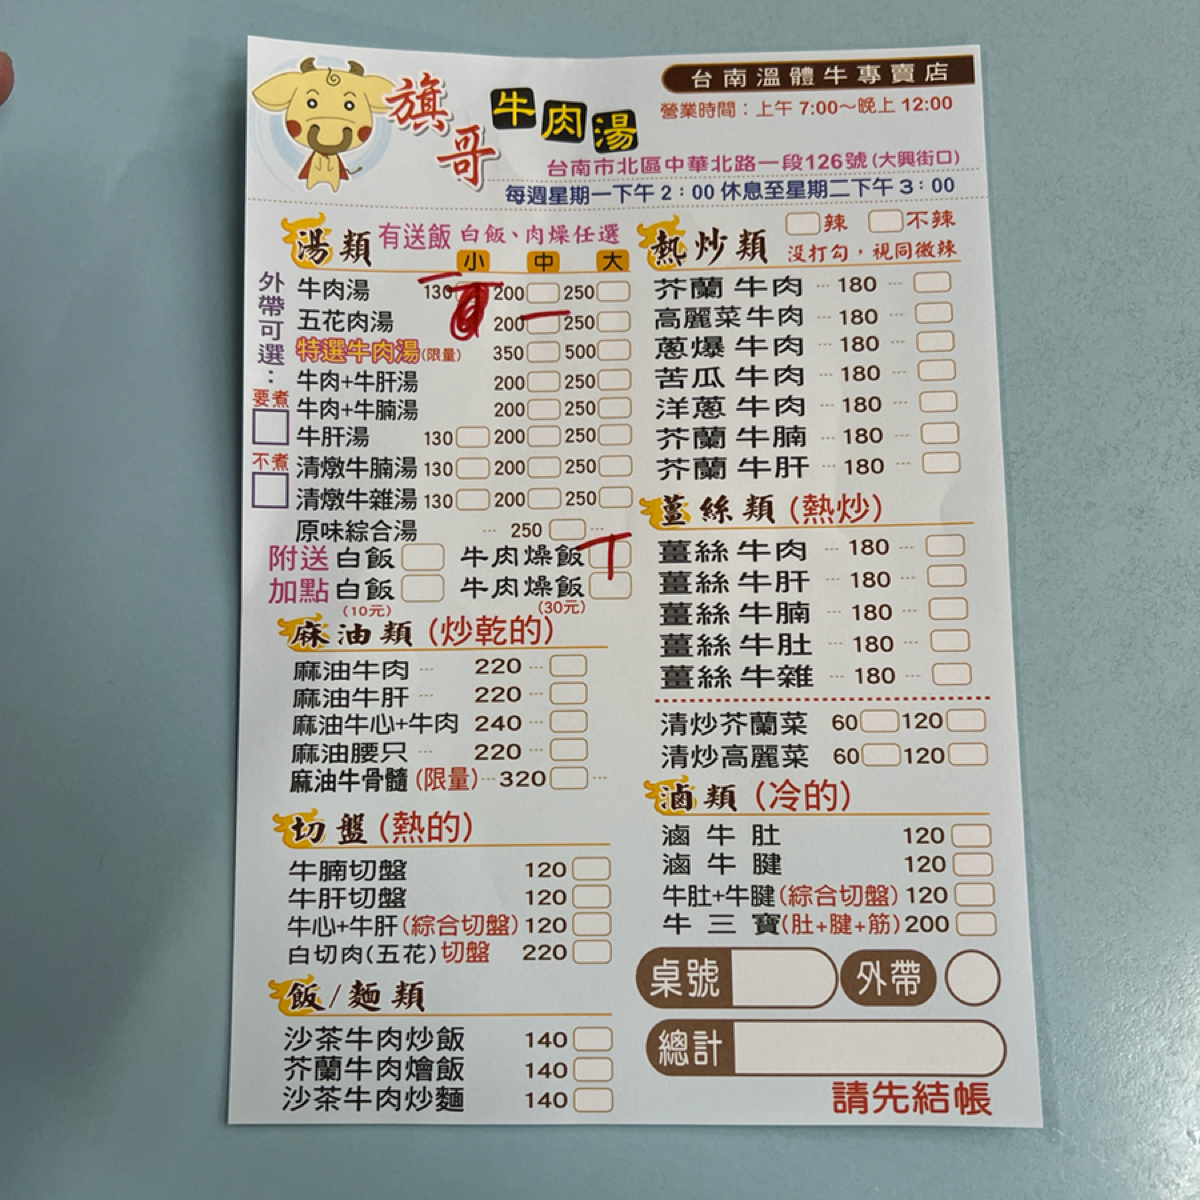 台南溫體牛專賣店
旗哥
牛肉湯
營業時間：上午 7:00～晚上 12:00
台南市北區中華北路一段126號(大興街口)
每週星期一下午 2：00 休息至星期二下午 3：00
湯類 有送飯 白飯、肉燥任選
小 中 大
外帶可選：
要煮
不煮
牛肉湯 130 200 250
五花肉湯 200 250
特選牛肉湯(限量) 350 500
牛肉+牛肝湯 200 250
牛肉+牛腩湯 200 250
牛肝湯 130 200 250
清燉牛腩湯 130 200 250
清燉牛雜湯 130 200 250
原味綜合湯 ··· 250 ···
附送 白飯 牛肉燥飯
加點 白飯 牛肉燥飯
(10元) (30元)
麻油類 (炒乾的)
麻油牛肉 ··· 220 ···
麻油牛肝 ··· 220 ···
麻油牛心+牛肉 240 ···
麻油腰只 ··· 220 ···
麻油牛骨髓 (限量) ··· 320 ···
切盤 (熱的)
牛腩切盤 120
牛肝切盤 120
牛心+牛肝(綜合切盤) 120
白切肉(五花)切盤 220
飯/麵類
沙茶牛肉炒飯 140
芥蘭牛肉燴飯 140
沙茶牛肉炒麵 140
熱炒類
辣 不辣
沒打勾，視同微辣
芥蘭牛肉 ··· 180 ···
高麗菜牛肉 ··· 180 ···
蔥爆牛肉 ··· 180 ···
苦瓜牛肉 ··· 180 ···
洋蔥牛肉 ··· 180 ···
芥蘭牛腩 ··· 180 ···
芥蘭牛肝 ··· 180 ···
薑絲類 (熱炒)
薑絲牛肉 ··· 180 ···
薑絲牛肝 ··· 180 ···
薑絲牛腩 ··· 180 ···
薑絲牛肚 ··· 180 ···
薑絲牛雜 ··· 180 ···
清炒芥蘭菜 60 120
清炒高麗菜 60 120
滷類 (冷的)
滷牛肚 120
滷牛腱 120
牛肚+牛腱(綜合切盤) 120
牛三寶(肚+腱+筋) 200
桌號 外帶
總計
請先結帳